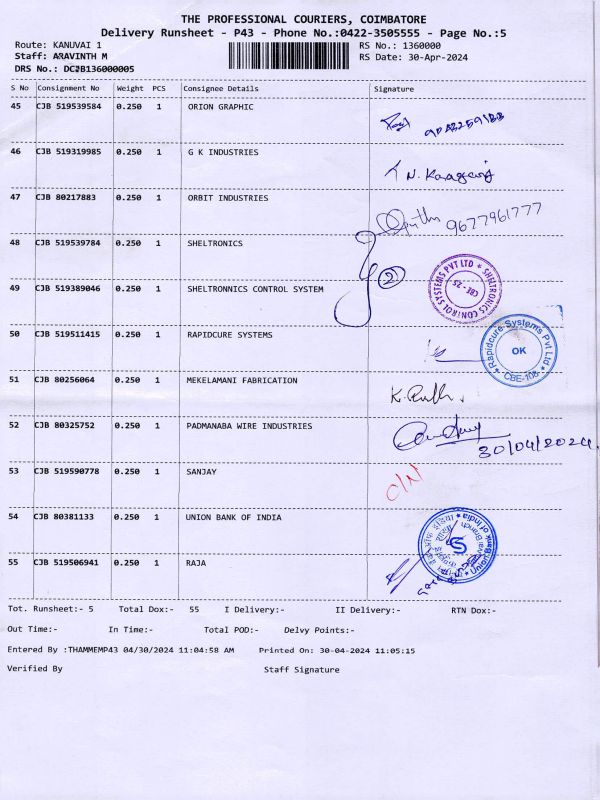 THE PROFESSIONAL COURIERS, COIMBATORE
Delivery Runsheet - P43 - Phone No.:0422-3505555 - Page No.:5
Route: KANUVAI 1
RS No.: 1360000
Staff: ARAVINTH M
RS Date: 30-Apr-2024
DRS No.: DCJB136000005
S No Consignment No Weight PCS Consignee Details Signature
45 CJB 519539584 0.250 1 ORION GRAPHIC
46 CJB 519319985 0.250 1 G K INDUSTRIES
47 CJB 80217883 0.250 1 ORBIT INDUSTRIES
9677961777
48 CJB 519539784 0.250 1 SHELTRONICS
2
SHELTRONICS CONTROL SYSTEMS PVT LTD
CBE - 25
49 CJB 519389046 0.250 1 SHELTRONNICS CONTROL SYSTEM
50 CJB 519511415 0.250 1 RAPIDCURE SYSTEMS
Rapidcure Systems Pvt Ltd
OK
CBE-108
51 CJB 80256064 0.250 1 MEKELAMANI FABRICATION
52 CJB 80325752 0.250 1 PADMANABA WIRE INDUSTRIES
30/04/2024
53 CJB 519590778 0.250 1 SANJAY
O/N
54 CJB 80381133 0.250 1 UNION BANK OF INDIA
Union Bank of India
55 CJB 519506941 0.250 1 RAJA
Tot. Runsheet:- 5 Total Dox:- 55 I Delivery:- II Delivery:- RTN Dox:-
Out Time:- In Time:- Total POD:- Delvy Points:-
Entered By :THAMMEMP43 04/30/2024 11:04:58 AM Printed On: 30-04-2024 11:05:15
Verified By Staff Signature